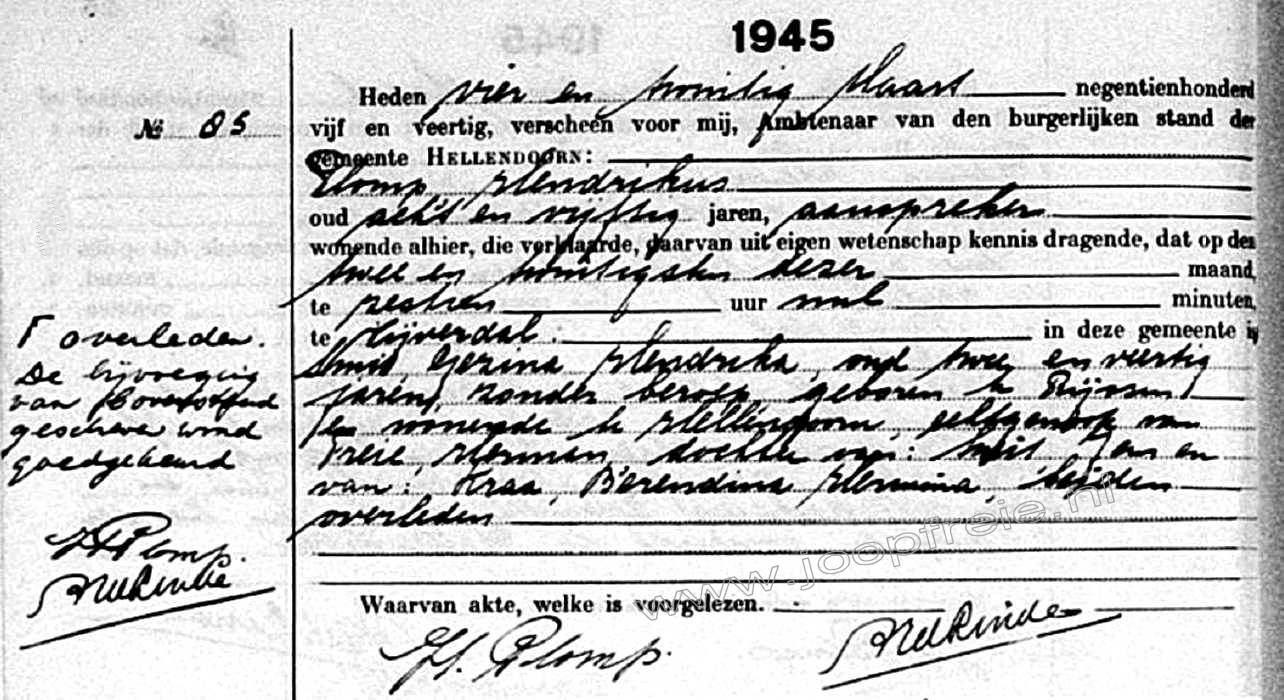 1945
№ 85
Heden vier en twintig Maart negentienhonderd
vijf en veertig, verscheen voor mij, Ambtenaar van den burgerlijken stand der
gemeente HELLENDOORN:
Plomp, Hendrikus
oud acht en vijftig jaren, aanspreker
wonende alhier, die verklaarde, daarvan uit eigen wetenschap kennis dragende, dat op den
twee en twintigsten dezer maand
te zestien uur nul minuten,
te Nijverdal in deze gemeente is
Smit Gezina Hendrika, oud twee en veertig
jaren, zonder beroep, geboren te Rijssen
en wonende te Hellendoorn, echtgenoote van
Herman, dochter van: Smit, Jan en
van: Kraa, Berendina Hermina, beiden
overleden
Γ overleden.
De bijvoeging
van bovenstaand
geschreven word
goedgekeurd
H Plomp.
Waarvan akte, welke is voorgelezen.
H. Plomp.
www.joopfreie.nl